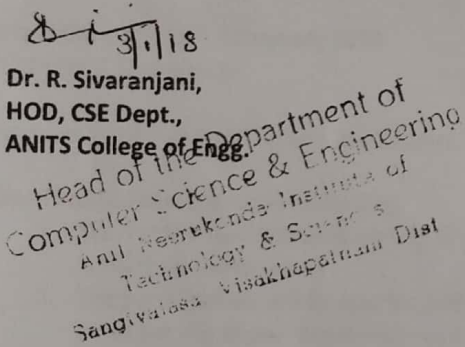 3/1/18
Dr. R. Sivaranjani,
HOD, CSE Dept.,
ANITS College of Engg.
Head of the Department of
Computer Science & Engineering
Anil Neerukonda Institute of
Technology & Sciences
Sangivalasa, Visakhapatnam Dist